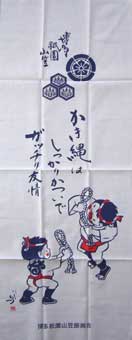 博多
祇園
山笠
かき縄は
しっかりかついで
ガッチリ友情
博多祇園山笠振興会